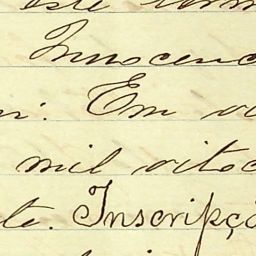 este
Innocenc
Em
mil oitoc
te. Inscripçã